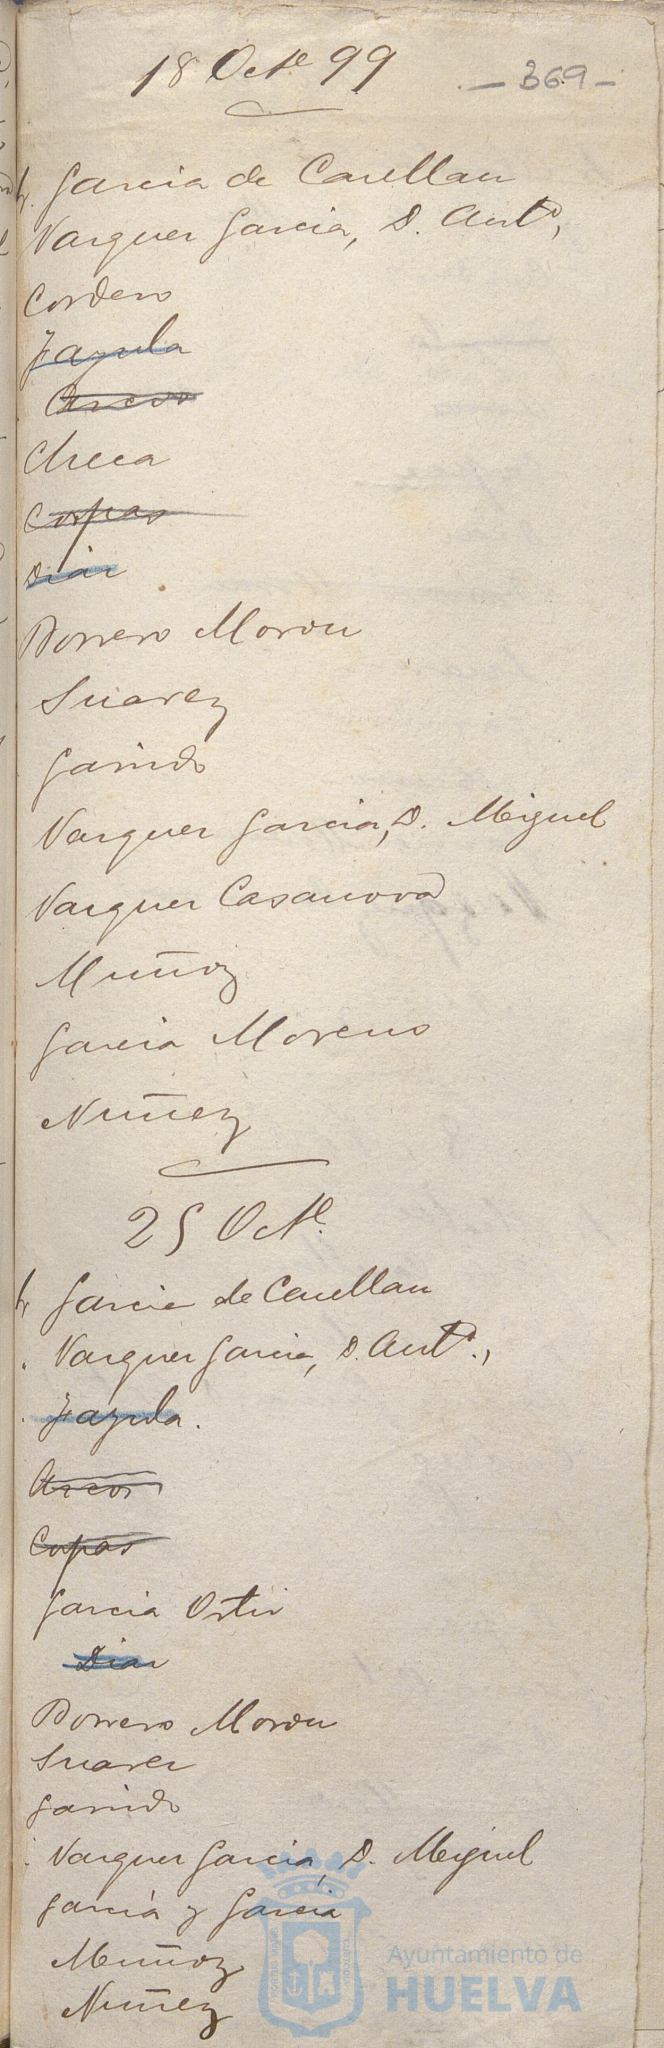 18 Octe 99
- 369 -
Sr. Garcia de Casellan
Vazquez Garcia, D. Anto,
Cordero
Zayula
Arcos
Checa
Corpas
Diaz
Borrero Moron
Suarez
Garrido
Vazquez Garcia, D. Miguel
Vazquez Casanova
Muñoz
Garcia Moreno
Nuñez
25 Octe.
Sr. Garcia de Casellan
Vazquez Garcia, D. Anto.,
Zayula.
Arcos
Corpas
Garcia Ortiz
Diaz
Borrero Moron
Suarez
Garrido
Vazquez Garcia, D. Miguel
Garcia y Garcia
Muñoz
Nuñez
Ayuntamiento de
HUELVA